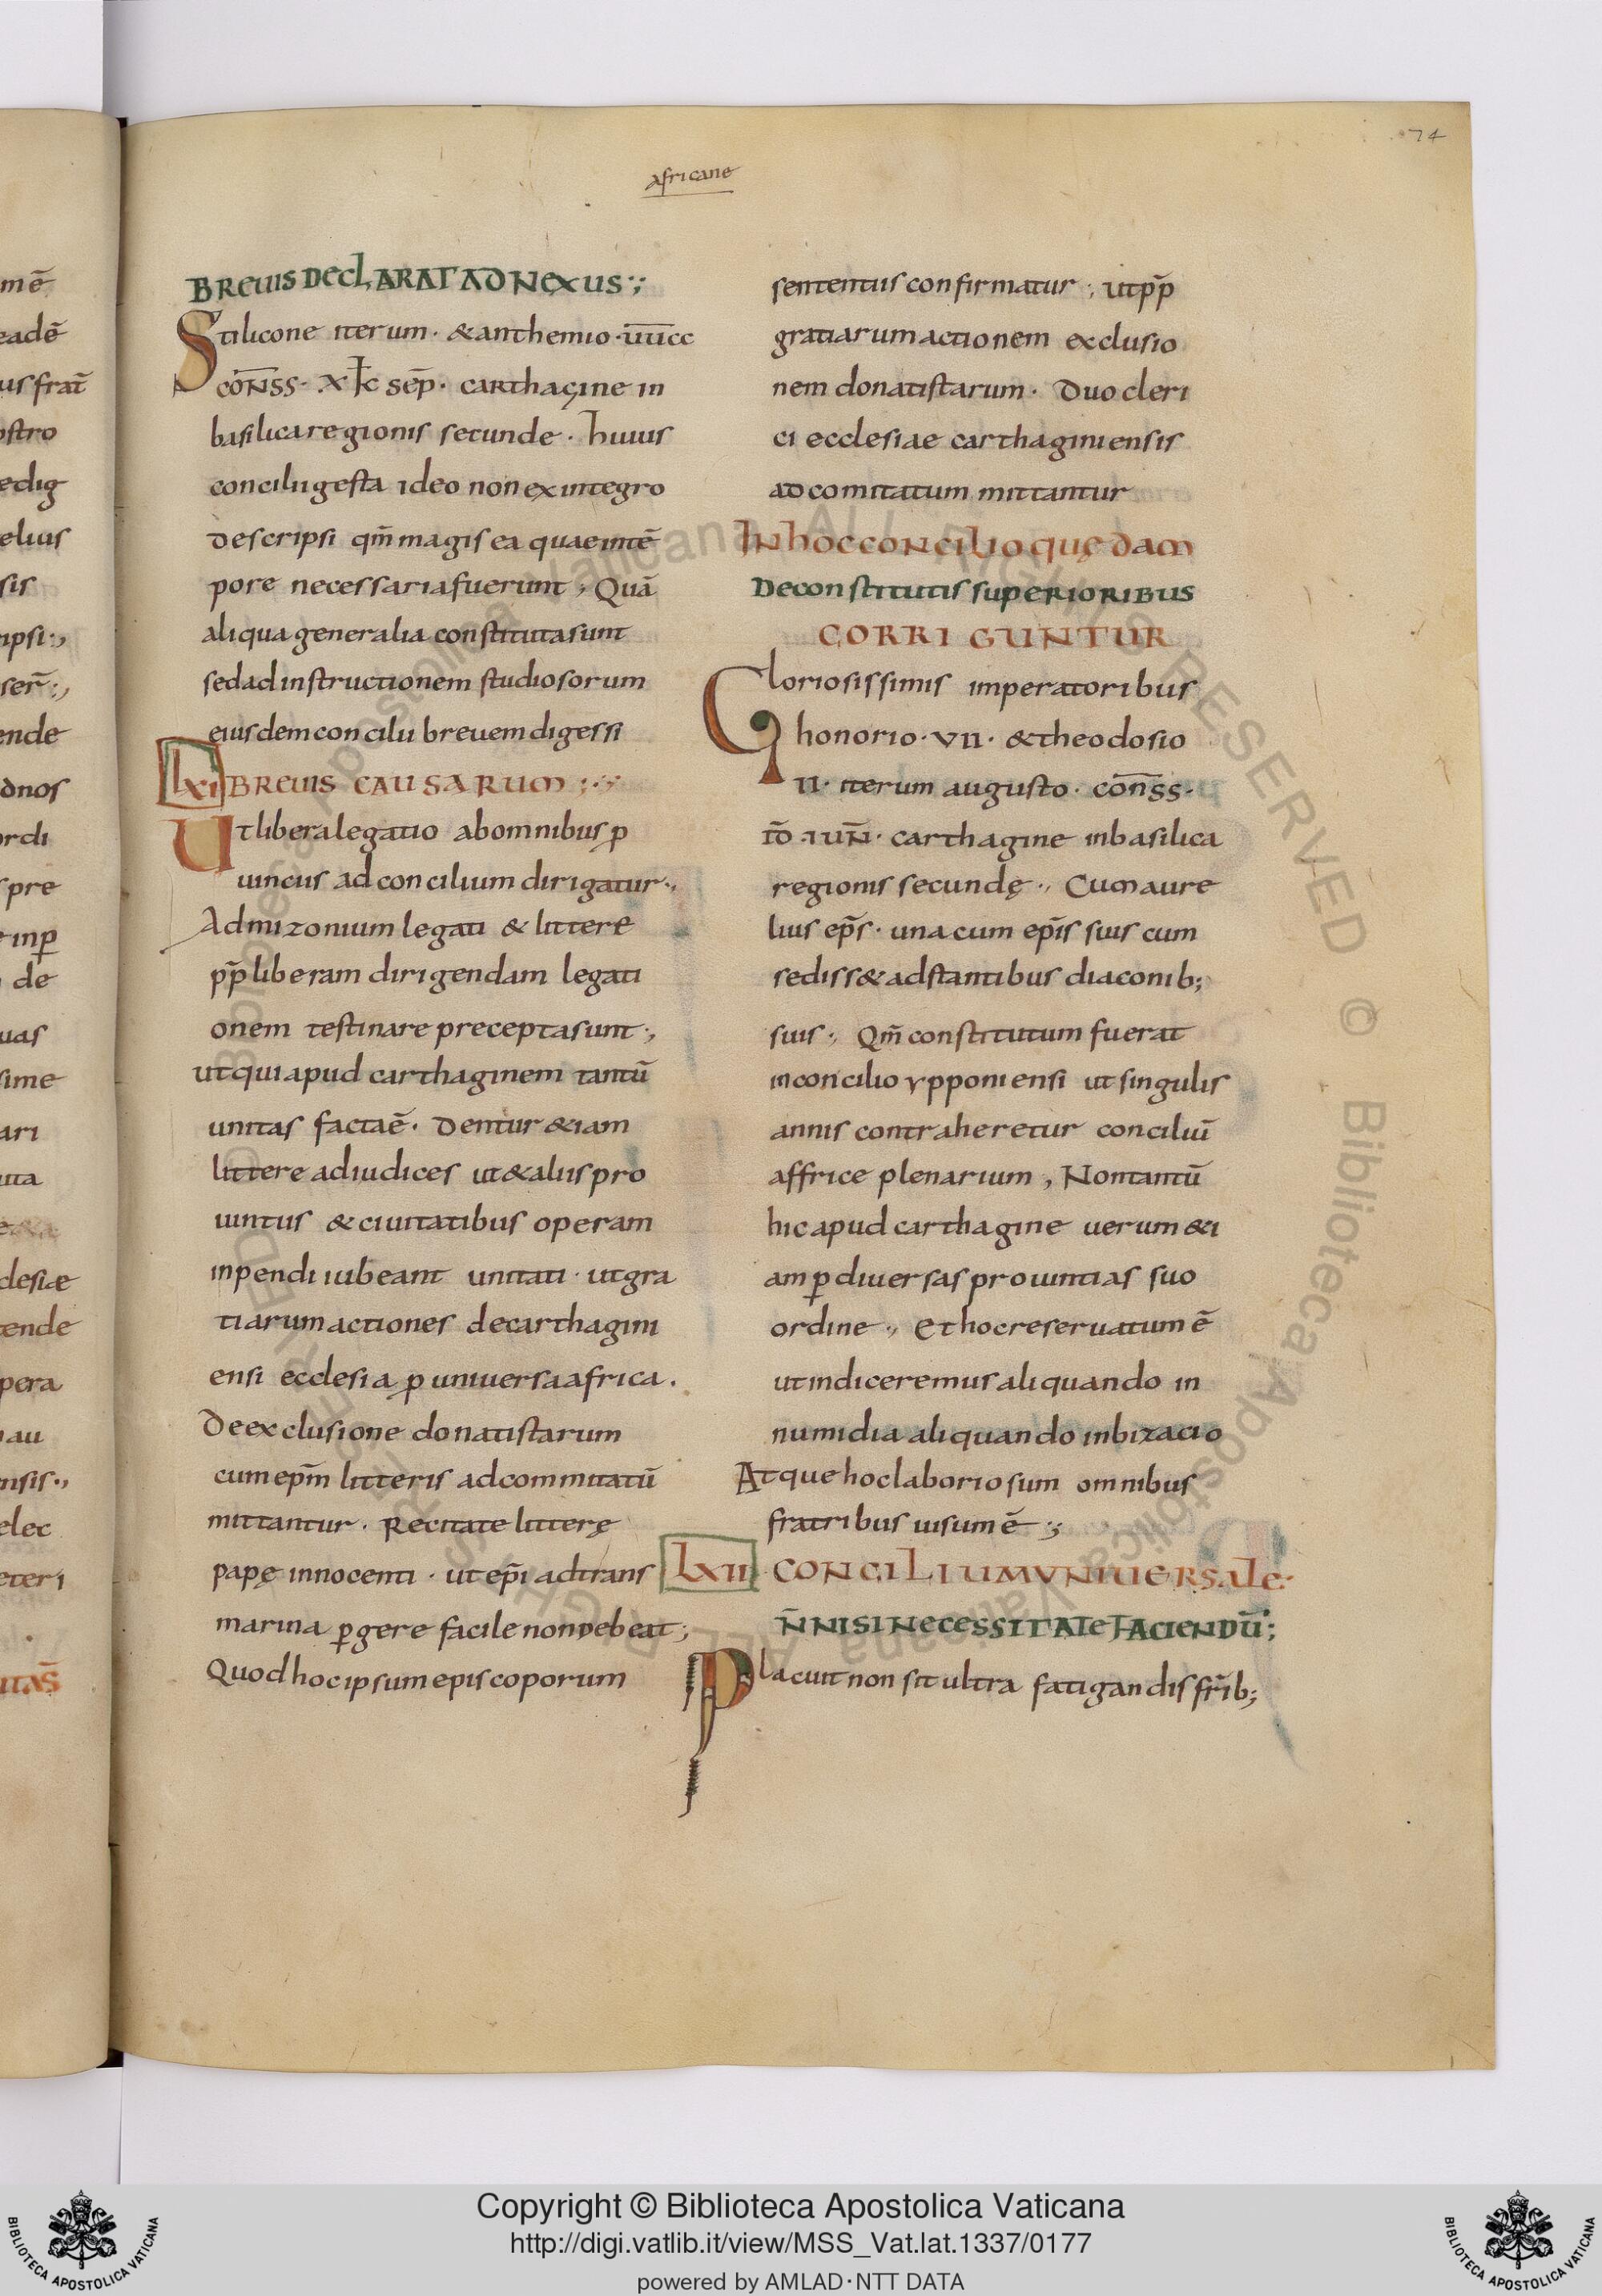 074
africane
BREUIS DECLARAT ADNEXUS :;
Stilicone iterum · & anthemio · uu͞cc
co͞nss · X k̄c sep̄ · carthagine in
basilica regionis secunde · huius
concilii gesta ideo non ex integro
descripsi qm̄ magis ea quae in tē
pore necessaria fuerunt ; Quā
aliqua generalia constituta sunt
sed ad instructionem studiosorum
eiusdem concilii breuem digessi
LXI BREUIS CAUSARUM :·:
Ut libera legatio ab omnibus ꝑ
uinciis ad concilium dirigatur .,
Ad mizonium legati & littere
pp̄ liberam dirigendam legati
onem testinare precepta sunt .,
ut qui apud carthaginem tantū
unitas facta ē · Dentur &iam
littere ad iudices ut & aliis pro
uintiis & ciuitatibus operam
inpendi iubeant unitati · ut gra
tiarum actiones de carthagini
ensi ecclesia ꝑ uniuersa africa .
De exclusione donatistarum
cum epm̄ litteris ad commitatū
mittantur . Recitate litterę
papę innocenti · ut ep̄i ad trans
marina ꝑgere facile non debeat ;
Quod hoc ipsum episcoporum
sententiis confirmatur ; ut pp̄
gratiarum actionem exclusio
nem donatistarum · Duo cleri
ci ecclesiae carthaginiensis
ad comitatum mittantur
IN hoc concilio quędam
De constitutis superioribus
CORRIGUNTUR
Gloriosissimis imperatoribus
honorio · VII · & theodosio
II · iterum augusto · co͞nss ·
id̄ iun̄ · carthagine in basilica
regionis secundę ., Cum aure
lius ep̄s · una cum ep̄is suis cum
sediss& adstantibus diaconib;
suis ., Qm̄ constitutum fuerat
in concilio ypponiensi ut singulis
annis contraheretur conciliū
affrice plenarium , Non tantū
hic apud carthagine uerum &i
am ꝑ diuersas prouintias suo
ordine ., Et hoc reseruatum ē
ut indiceremus aliquando in
numidia aliquando in bizacio
Atque hoc laboriosum omnibus
fratribus uisum ē :;
LXII CONCILIUM VNIUERSALE
n̄ NISI NECESSITATE FACIENDŪ ;
Placuit non sit ultra fatigandis fr̄ib;
Copyright © Biblioteca Apostolica Vaticana
http://digi.vatlib.it/view/MSS_Vat.lat.1337/0177
powered by AMLAD·NTT DATA
BIBLIOTECA APOSTOLICA VATICANA
BIBLIOTECA APOSTOLICA VATICANA